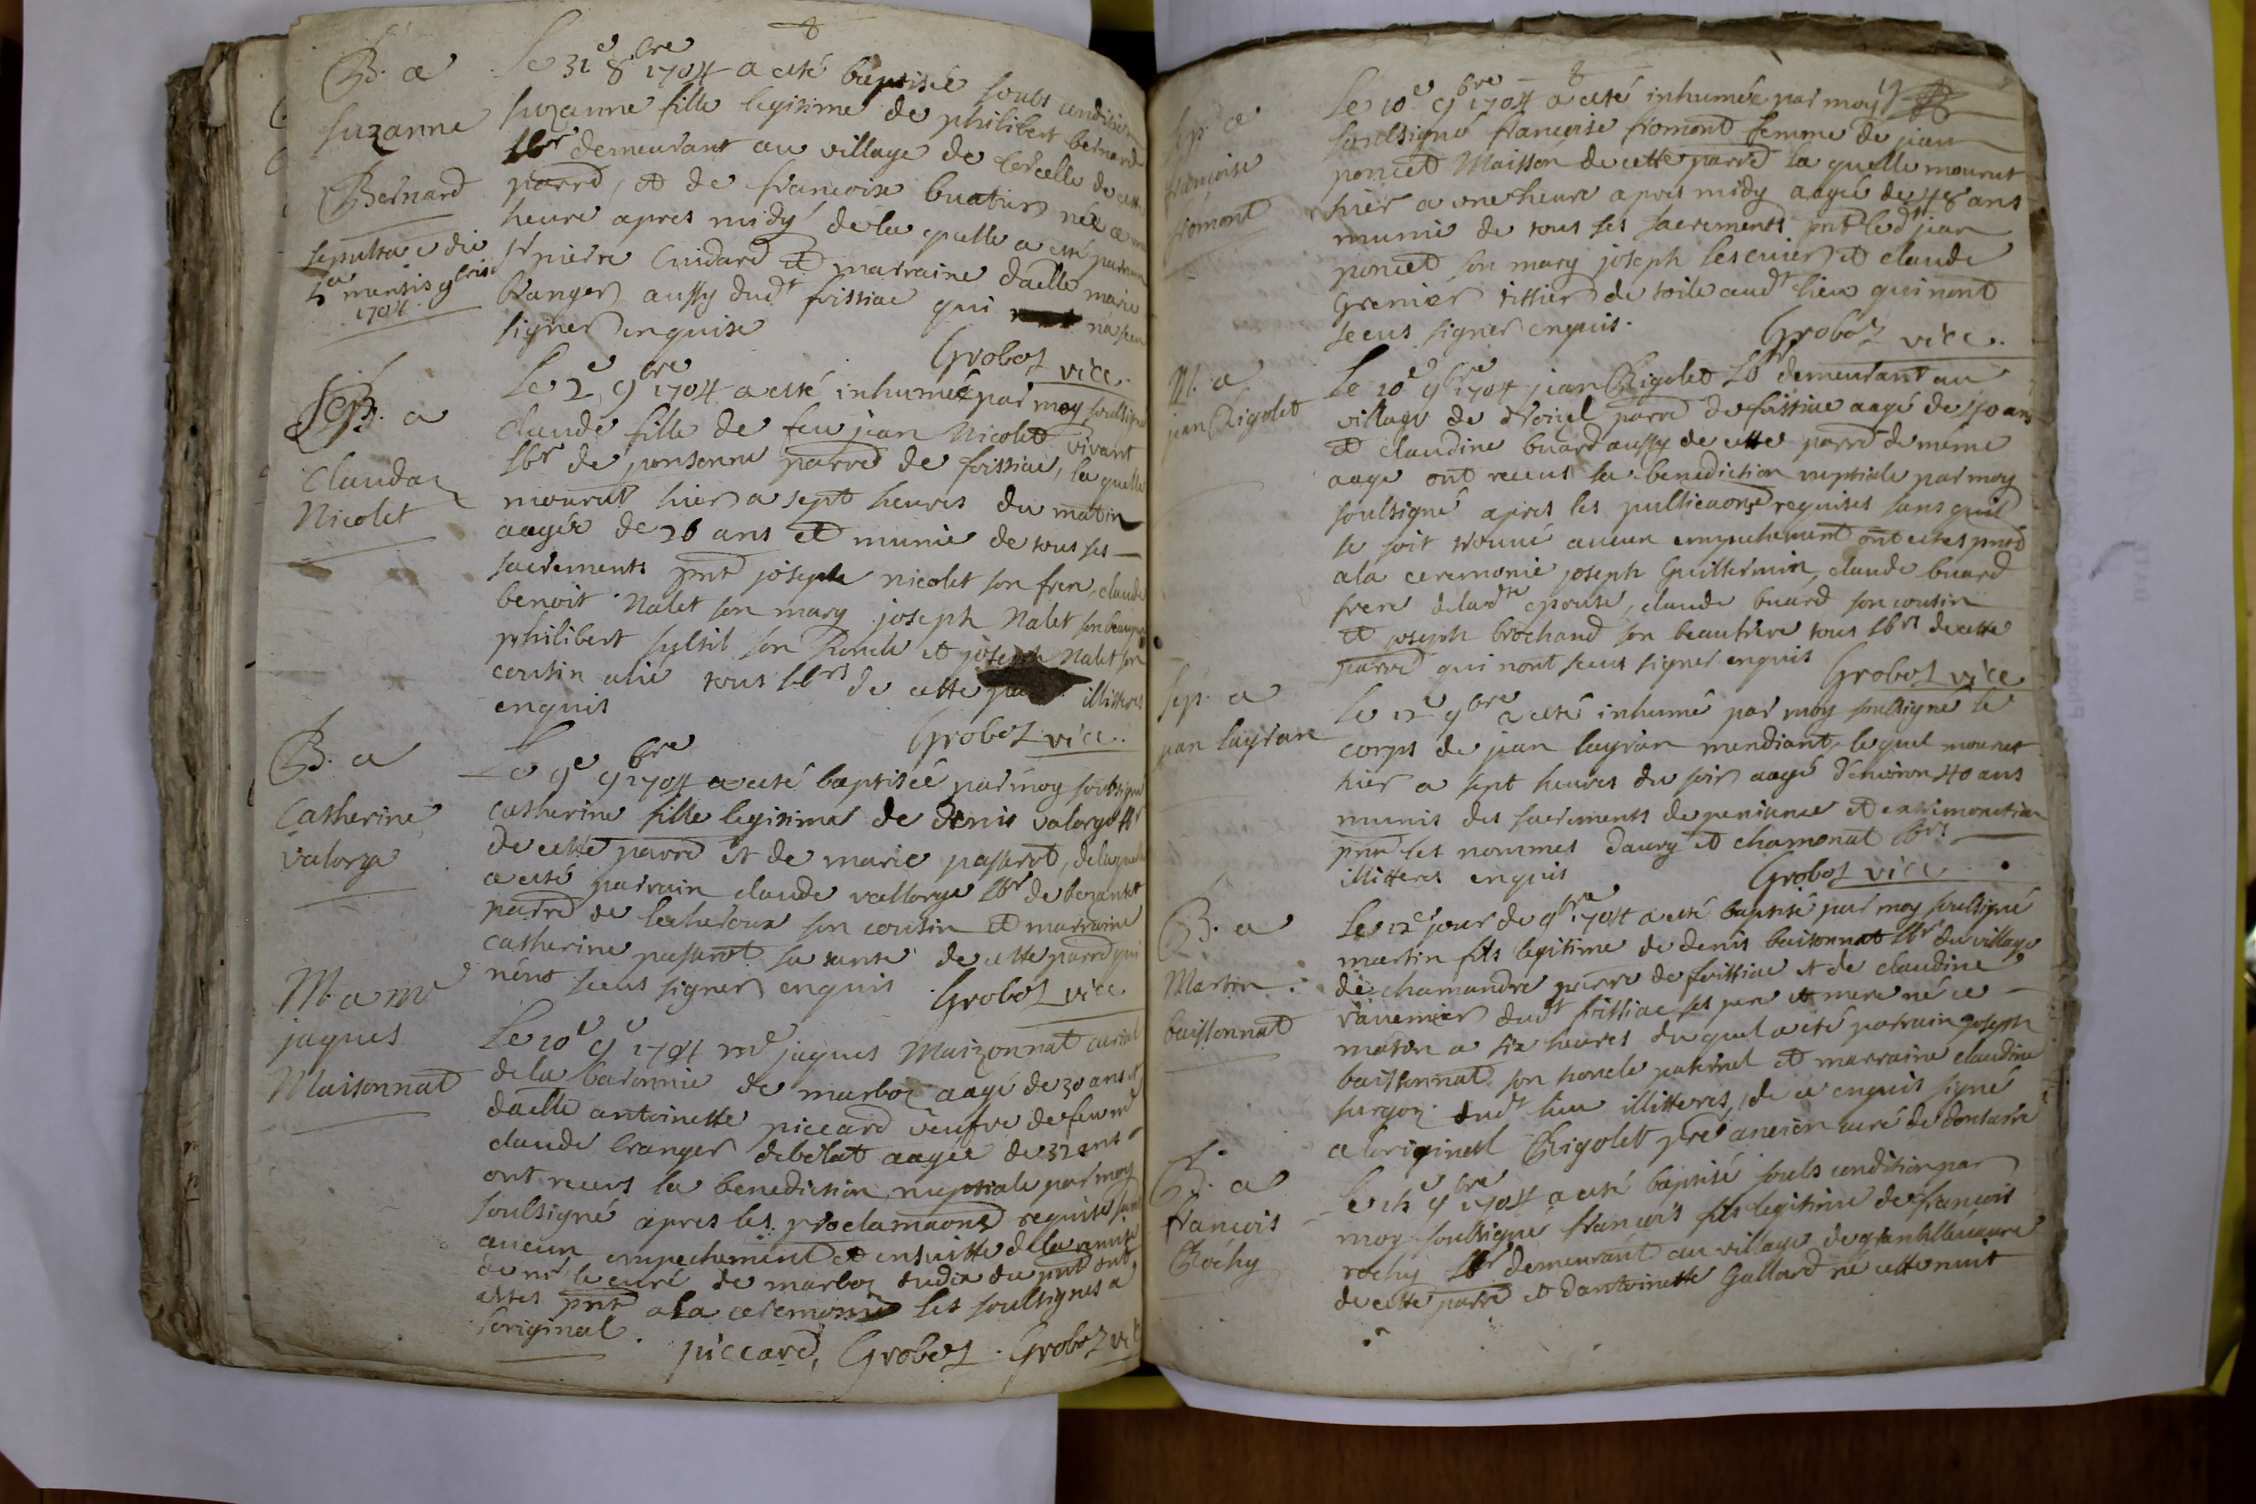 B. a
Suzanne
Bernard
sepulta e die
5a mensis 9bris
1704
Le 31e 8bre 1704 a esté baptisée soubs condition
suzanne fille legitime de philibert bernard
lbr demeurant au village de Corcelle de cette
parrd, et de francoise buatier née a une
heure apres midy de la quelle a esté parrain
sr pierre Cuidard et marraine daelle marie
Granger aussy dudt foissiac qui na sceu
signer enquise
Groboz vice.
Sep. a
Clauda
Nicolet
Le 2e 9bre 1704 a esté inhumée par moy soulsigné
Claude fille de feu jean Nicolet vivant
lbr de ponsonne parred de foissiac, la quelle
mourut hier a sept heures du matin
aagée de 26 ans et munie de tous ses
sacrements pnt joseph nicolet son frere, claude
benoit Nalet son mary joseph Nalet son beaupere
philibert son honcle et joseph Nalet son
cousin alié tous lbrs de cette illitteres
enquis
Groboz vice.
B. a
Catherine
Valorge
Le 9e 9bre 1704 a esté baptisée par moy soubsigné
catherine fille legitime de denis valorge lbr
de cette parrd et de marie passerot, de laquelle
a esté parrain claude vallorge lbr de bezantet
parrd de lescheroux son cousin et marraine
catherine passerot sa tante de cette parrd qui
nont sceus signer enquis Groboz vice
M. a me
jaques
Maisonnat
Le 10e 9e 1704 me jaques Maizonnat curial
de la baronnie de marboz aagé de 30 ans et
daelle antoinette piccard veufve de feu me
claude Granger debelat aagée de 32 ans
ont receus la benediction nuptiale par moy
soulsigné apres les proclamaons requises sans
aucun empechement et ensuitte de la remise
de mr le curé de marboz dudix du pnt ont
estés pnt a la ceremonie les soulsignes a
loriginal.
piccard, Groboz. Groboz vic
Sep. a
francoise
fromont
Le 10e 9bre 1704 a esté inhumée par moy
soulsigné francoise fromont femme de jean
poncet Maisson de cette parrd la quelle mourut
hier a une heure apres midy aagée de 48 ans
munie de tous ses sacrements pnt led jean
poncet son mary joseph lescuier et claude
Grenier tissier de toile audt lieu qui nont
sceus signer enquis.
Groboz vice.
M. a
jean Rigolet
Le 10e 9bre 1704 jean Rigolet lbr demeurant au
village de parrd de foissiac aagé de 40 ans
et claudine buard aussy de cette parrd de même
aage ont receus la benediction nuptiale par moy
soulsigné apres les publicaons requises sans quil
se soit trouué aucun empechement ont estes pnts
a la ceremonie joseph Guillermin, claude buard
frere deladte epouse, claude buard son cousin
et joseph brochand son beaufrere tous lbrs de cette
parrd qui nont sceus signer enquis Groboz vice
Sep. a
jean layran
Le 12e 9bre a esté inhumé par moy soulsigné le
corps de jean layran mendiant, lequel mourut
hier a sept heures du soir aagé d'environ 40 ans
munis des sacrements de penitence et extremonction
pnts les nommes daury et chamonat lbrs
illitteres enquis Groboz vice
B. a
Martin
buissonnat
Le 12e jour de 9bre 1704 a esté baptisé par moy soulsigné
martin fils legitime de denis buissonnat lbr du village
de chamandre parrd de foissiac et de claudine
dudt foissiac ses pere et mere né ce
matin a six heures du quel a esté parrain joseph
buissonnat son honcle paternel et marraine claudine
surgon dudt lieu illitteres, de ce enquis signé
a loriginal Rigolet pre ancien curé de domsure
B. a
francois
Rochy
Le 9bre 1704 a esté baptisé soubs condition par
moy soulsigné francois fils legitime de francois
rochy lbr demeurant au village de
de cette parrd et dantoinette Gallard né cette nuit